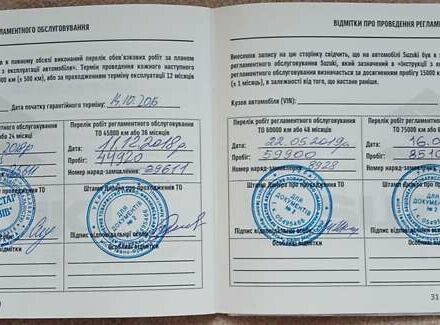 ЛАМЕНТНОГО ОБСЛУГОВУВАННЯ
я в повному обсязі виконаний перелік обов'язкових робіт за планом
з експлуатації автомобіля». Термін проведення кожного наступного
000 км (± 500 км), або за проходженням терміну експлуатації 12 місяців
Дата початку гарантійного терміну: 14.10.2015
Перелік робіт регламентного обслуговування
ТО 45000 км або 36 місяців
або 24 місяці
Дата: 11.12.2018р
Пробіг: 44920
Номер наряд-замовлення: 29611
Штамп Дилера про проходження ТО
ДЛЯ
ДОКУМЕНТІВ
Підпис відповідальної особи
Особливі відмітки
відмітки
ВІДМІТКИ ПРО ПРОВЕДЕННЯ РЕГЛАМЕНТНОГО
Внесення запису на цю сторінку свідчить, що на автомобілі Suzuki був в
регламентного обслуговування Suzuki, який зазначений в «Інструкції з
регламентного обслуговування визначається за досягненням пробігу 15000 км
(± 1 місяць), в залежності від того, що настане раніше.
Кузов автомобіля (VIN):
Перелік робіт регламентного обслуговування
ТО 60000 км або 48 місяців
Дата: 22.05.2019р.
Пробіг: 59900
Номер наряд-замовлення: 8928
Штамп Дилера про проходження ТО
ДЛЯ
ДОКУМЕНТІВ
Підпис відповідальної особи
Особливі відмітки
Перелік робіт регл
ТО 75000 км
Дата: 16.0
Пробіг: 8510
Номер наряд-замовл
Штамп Дилера
ДЛЯ
ДОКУМЕНТІВ
Підпис відповід
Особли
31